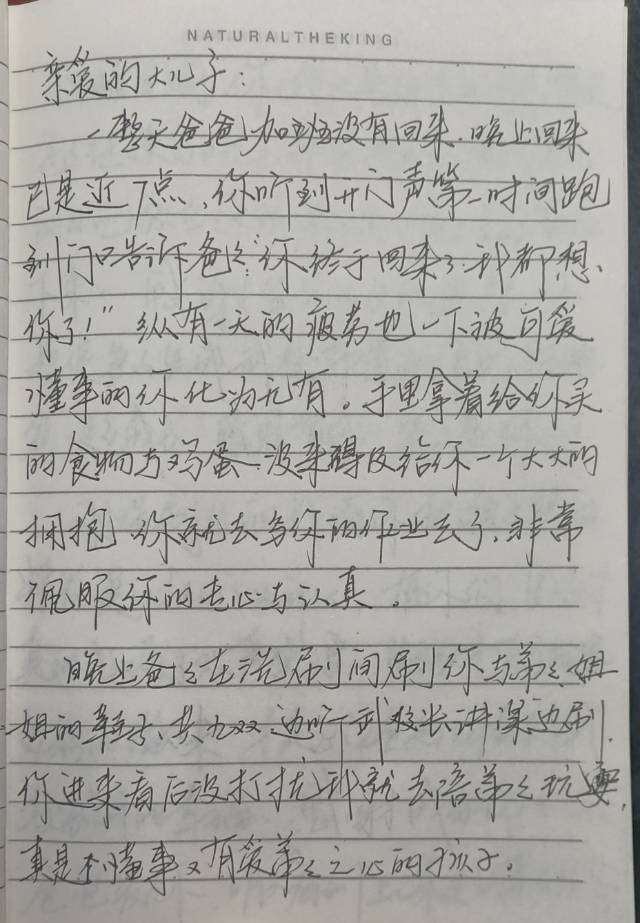 NATURALTHEKING
亲爱的大儿子:
一整天爸爸加班没有回来.晚上回来
已是近7点,你听到开门声第一时间跑
到门口告诉爸爸:“你终于回来了.我都想
你了!”纵有一天的疲劳也一下被可爱
懂事的你化为无有。手里拿着给你买
的食物与鸡蛋.没来得及给你一个大大的
拥抱.你就去写你的作业去了.非常
佩服你的专心与认真。
晚上爸爸在洗刷间刷你与弟弟、姐
姐的鞋子、共九双.边听武校长讲课边刷.
你进来看后没打扰我就去陪弟弟玩耍,
真是个懂事又有爱弟弟之心的孩子.